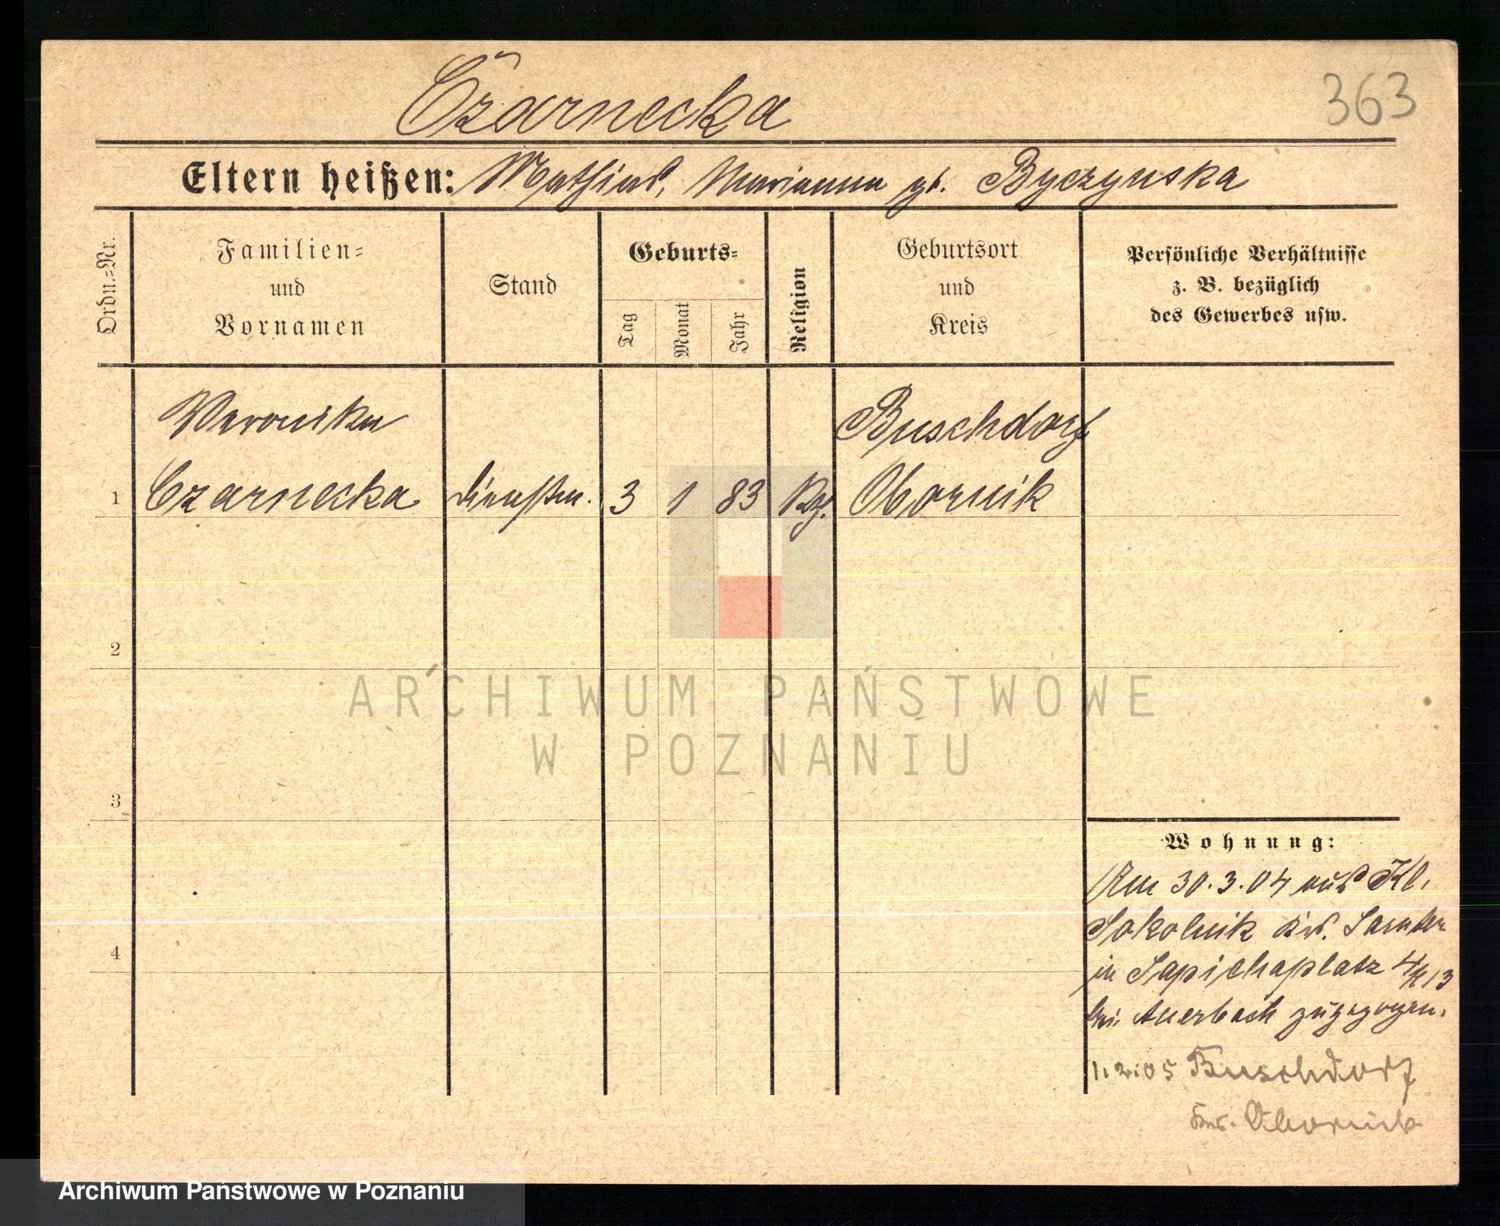 Czarnecka
363
Eltern heißen: Mathias, Marianna gb. Byczynska
Ordn.-Nr.
Familien-
und
Vornamen
Stand
Geburts-
Tag
Monat
Jahr
Religion
Geburtsort
und
Kreis
Persönliche Verhältnisse
z. B. bezüglich
des Gewerbes usw.
Veronika
Buschdorf
1 Czarnecka Dienstm. 3 1 83 Obornik
2
3
4
ARCHIWUM PAŃSTWOWE
W POZNANIU
Wohnung:
Am 30.3.04 aus Kl.
Sokolnik Krs. Samter
in Sapiehaplatz
bei Auerbach zugezogen.
1.2.05 Buschdorf
Krs. Obornik
Archiwum Państwowe w Poznaniu